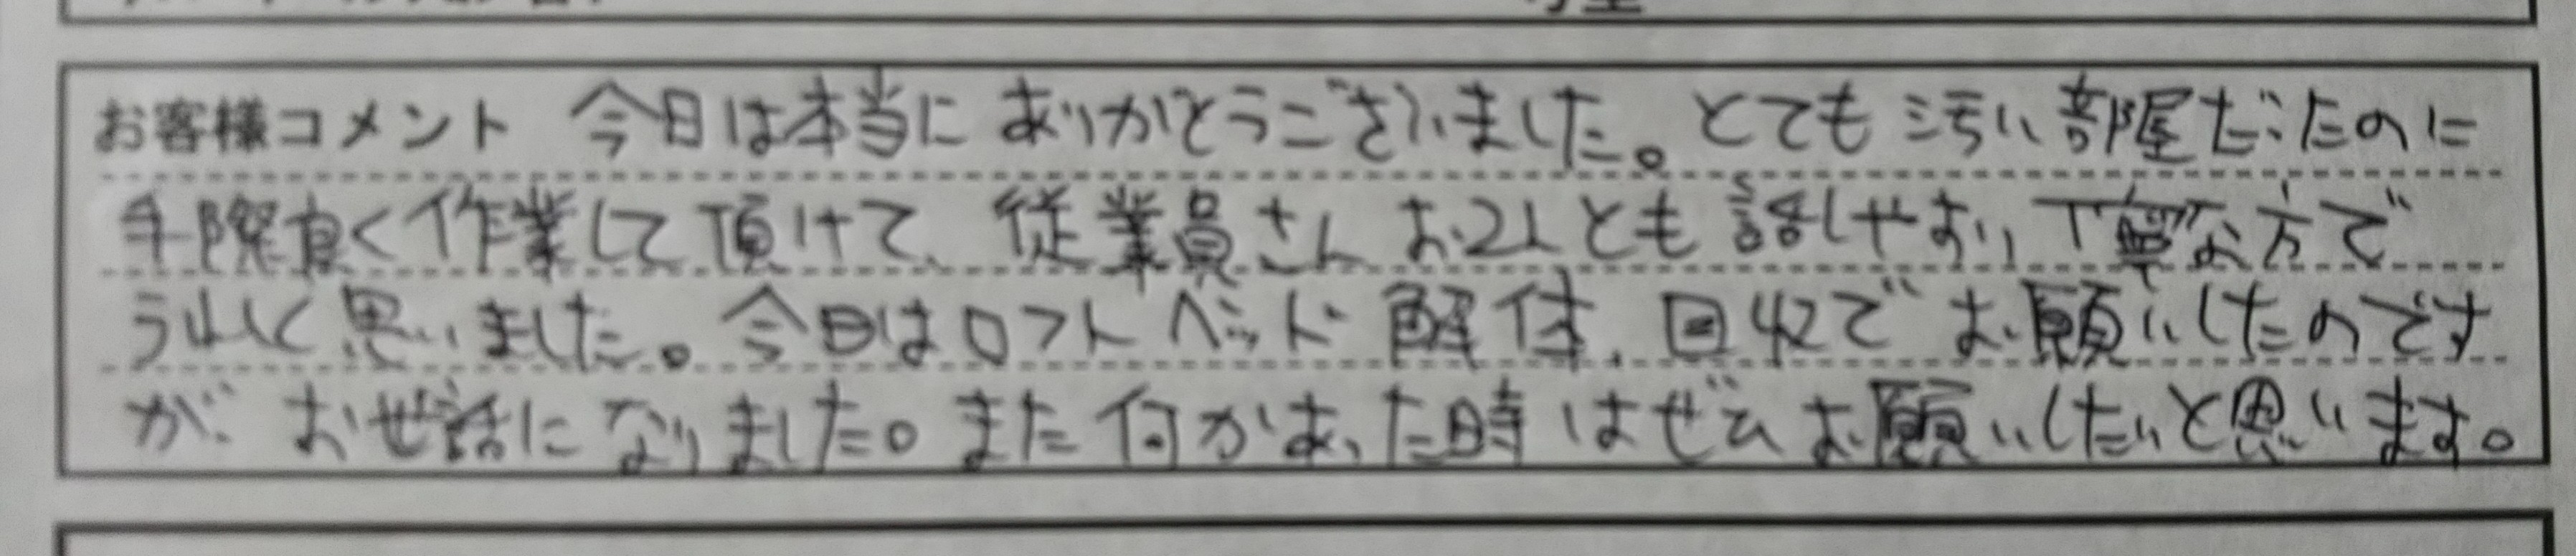 お客様コメント 今日は本当にありがとうございました。とても汚い部屋だったのに
手際良く作業して頂けて、従業員さんお2人とも話しやすい丁寧な方で
うれしく思いました。今日はロフトベット解体、回収でお願いしたのです
が、お世話になりました。また何かあった時はぜひお願いしたいと思います。